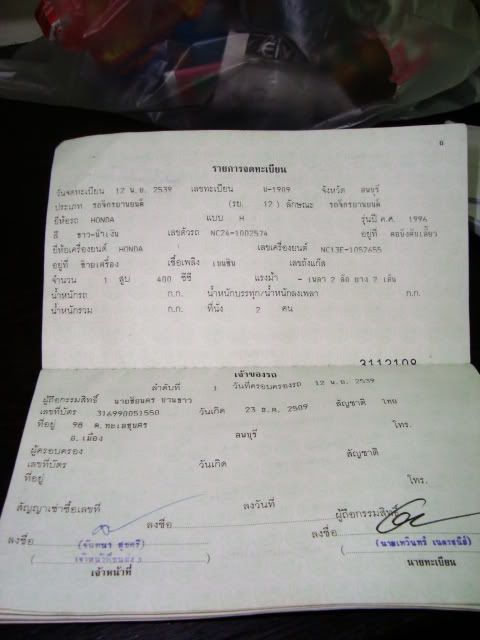 8
รายการจดทะเบียน
วันจดทะเบียน 12 พ.ย. 2539 เลขทะเบียน ย-1909 จังหวัด ลพบุรี
ประเภท รถจักรยานยนต์ (รย. 12) ลักษณะ รถจักรยานยนต์
ยี่ห้อรถ HONDA แบบ H รุ่นปี ค.ศ. 1996
สี ขาว-น้ำเงิน เลขตัวรถ NC24-1002574 อยู่ที่
ยี่ห้อเครื่องยนต์ HONDA เลขเครื่องยนต์ NC13E-1052455
อยู่ที่ ซ้ายเครื่อง เชื้อเพลิง เบนซิน เลขถังแก๊ส
จำนวน 1 สูบ 400 ซีซี แรงม้า - เพลา 2 ล้อ ยาง 2 เส้น
น้ำหนักรถ ก.ก. น้ำหนักบรรทุก/น้ำหนักลงเพลา ก.ก.
น้ำหนักรวม ก.ก. ที่นั่ง 2 คน
3112108
เจ้าของรถ
ลำดับที่ 1 วันที่ครอบครองรถ 12 พ.ย. 2539
ผู้ถือกรรมสิทธิ์
เลขที่บัตร 316990051550 วันเกิด 23 ธ.ค. 2509 สัญชาติ ไทย
ที่อยู่ 98 ต.ทะเลชุบศร โทร.
อ.เมือง ลพบุรี
ผู้ครอบครอง
เลขที่บัตร วันเกิด สัญชาติ
ที่อยู่ โทร.
สัญญาเช่าซื้อเลขที่ ลงวันที่ ผู้ถือกรรมสิทธิ์
ลงชื่อ
ลงชื่อ ลงชื่อ
(จันทนา สุขศรี)
เจ้าหน้าที่ นายทะเบียน